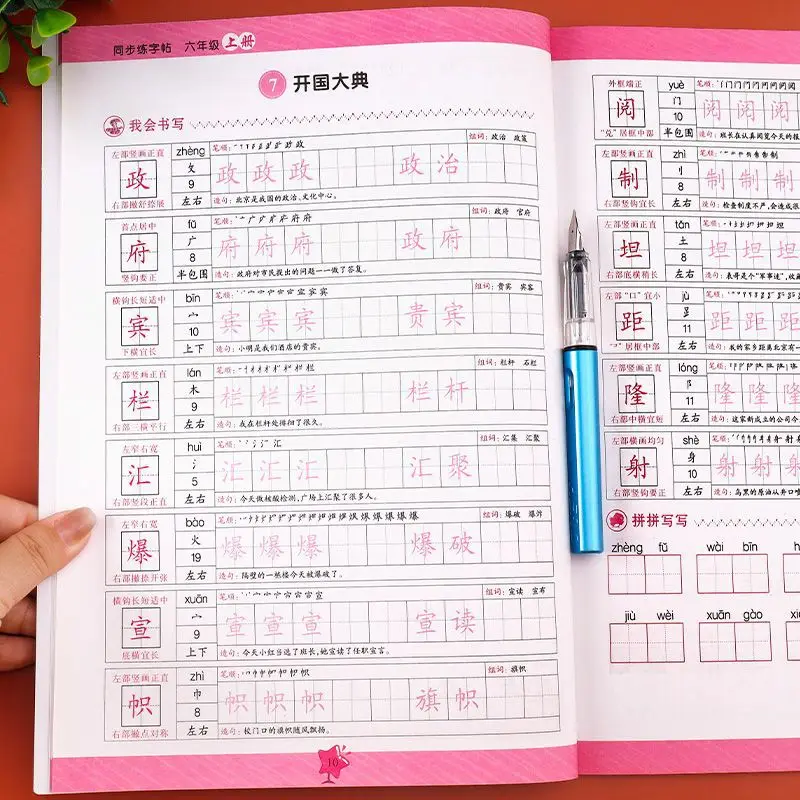 同步练字帖 六年级 上册
7 开国大典
我会书写
左部竖画正直 zhèng 笔顺： 政 组词：政治 政策
政 攵 政 政 政 政 治
9
右部撇舒捺展 左右 造句：北京是我国的政治、文化中心。
首点居中 fǔ 笔顺： 府 组词：政府 官府
府 广 府 府 府 政 府
8
竖钩要正 半包围 造句：政府对市民提出的问题一一做了答复。
横钩长短适中 bīn 笔顺： 宾 组词：贵宾 宾客
宾 宀 宾 宾 宾 贵 宾
10
下横宜长 上下 造句：小明是我们酒店的贵宾。
左部竖画正直 lán 笔顺： 栏 组词：栏杆 石栏
栏 木 栏 栏 栏 栏 杆
9
右部三横平行 左右 造句：我在栏杆处徘徊了很久。
左窄右宽 huì 笔顺： 汇 组词：汇集 汇聚
汇 氵 汇 汇 汇 汇 聚
5
右部竖段正直 左右 造句：今天做核酸检测，广场上汇聚了很多人。
左窄右宽 bào 笔顺： 爆 组词：爆破 爆炸
爆 火 爆 爆 爆 爆 破
19
右部撇捺开张 左右 造句：隔壁的一栋楼今天被爆破了。
横钩长短适中 xuān 笔顺： 宣 组词：宣读 宣布
宣 宀 宣 宣 宣 宣 读
9
底横宜长 上下 造句：今天小红当选了班长，她宣读了任职宣言。
左部竖画正直 zhì 笔顺： 帜 组词：旗帜
帜 巾 帜 帜 帜 旗 帜
8
右部撇点对称 左右 造句：校门口的旗帜随风飘扬。
10
外框端正 yuè 笔顺：
阅 门 阅 阅 阅
10
“兑”居框中部 半包围 造句：班长在认真阅览今天的报
左部竖画正直 zhì 笔顺： 制
制 刂 制 制 制
8
右部竖钩宜长 左右 造句：检查制度不严，会造成很
左部竖画正直 tǎn 笔顺： 坦
坦 土 坦 坦 坦
8
右部底横稍长 左右 造句：表哥是个“军事迷”，收藏
左部“口”宜小 jù 笔顺：
距 距 距 距
11
居框中部 左右 造句：我的家乡距离北京有一
左部竖画正直 lóng 笔顺：
隆 阝 隆 隆 隆
11
右部中横宜短 左右 造句：这家新成立的公司今
左部横画均匀 shè 笔顺：
射 身 射 射 射
10
右部竖钩要正 左右 造句：乌黑的原油从井口喷
拼拼写写
zhèng fǔ wài bīn h
jiù wèi xuān gào xi